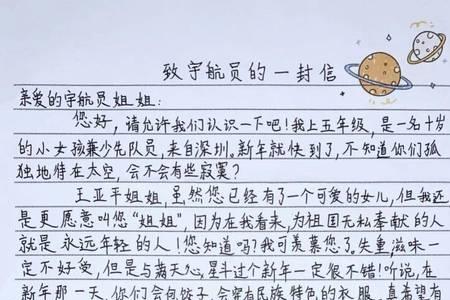 致宇航员的一封信
亲爱的宇航员姐姐:
您好,请允许我们认识一下吧!我上五年级,是一名十岁
的小女孩兼少先队员,来自深圳。新年就快到了,不知道你们孤
独地待在太空,会不会有些寂寞?
王亚平姐姐,虽然您已经有了一个可爱的女儿,但我还
是更愿意叫您“姐姐”,因为在我看来,为祖国无私奉献的人
就是永远年轻的人!您知道吗?我可羡慕您了。失重,滋味一
定不好受,但是与满天心星斗过个新年一定很不错!听说,在
新年那一天,你们会包饺子,会穿有民族特色的衣服,真希望有